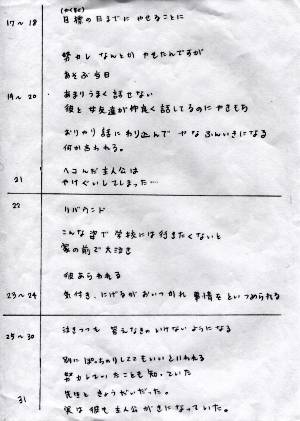 (もくひょう)
17〜18 目標の日までに やせることに
努力し なんとか やせたんですが
あそぶ当日
19〜20 あまりうまく話せない
彼と女友達が仲良く話してるのにやきもち
おもいきり話にわり込んで やなふんいきになる
何か言われる。
21 ヘコんだ主人公は
やけぐいしてしまった…
22 リバウンド
こんな姿で学校には行きたくないと
家の前で大泣き
彼あらわれる
23〜24 気付き、にげるがおいつかれ 事情をといつめられる
25〜30 泣きつつも 答えなきゃいけないようになる
別にぽっちゃりしててもいいといわれる
努力していたことも知っていた
先生ときょうだいだった。
31 実は彼も主人公が気になっていた。